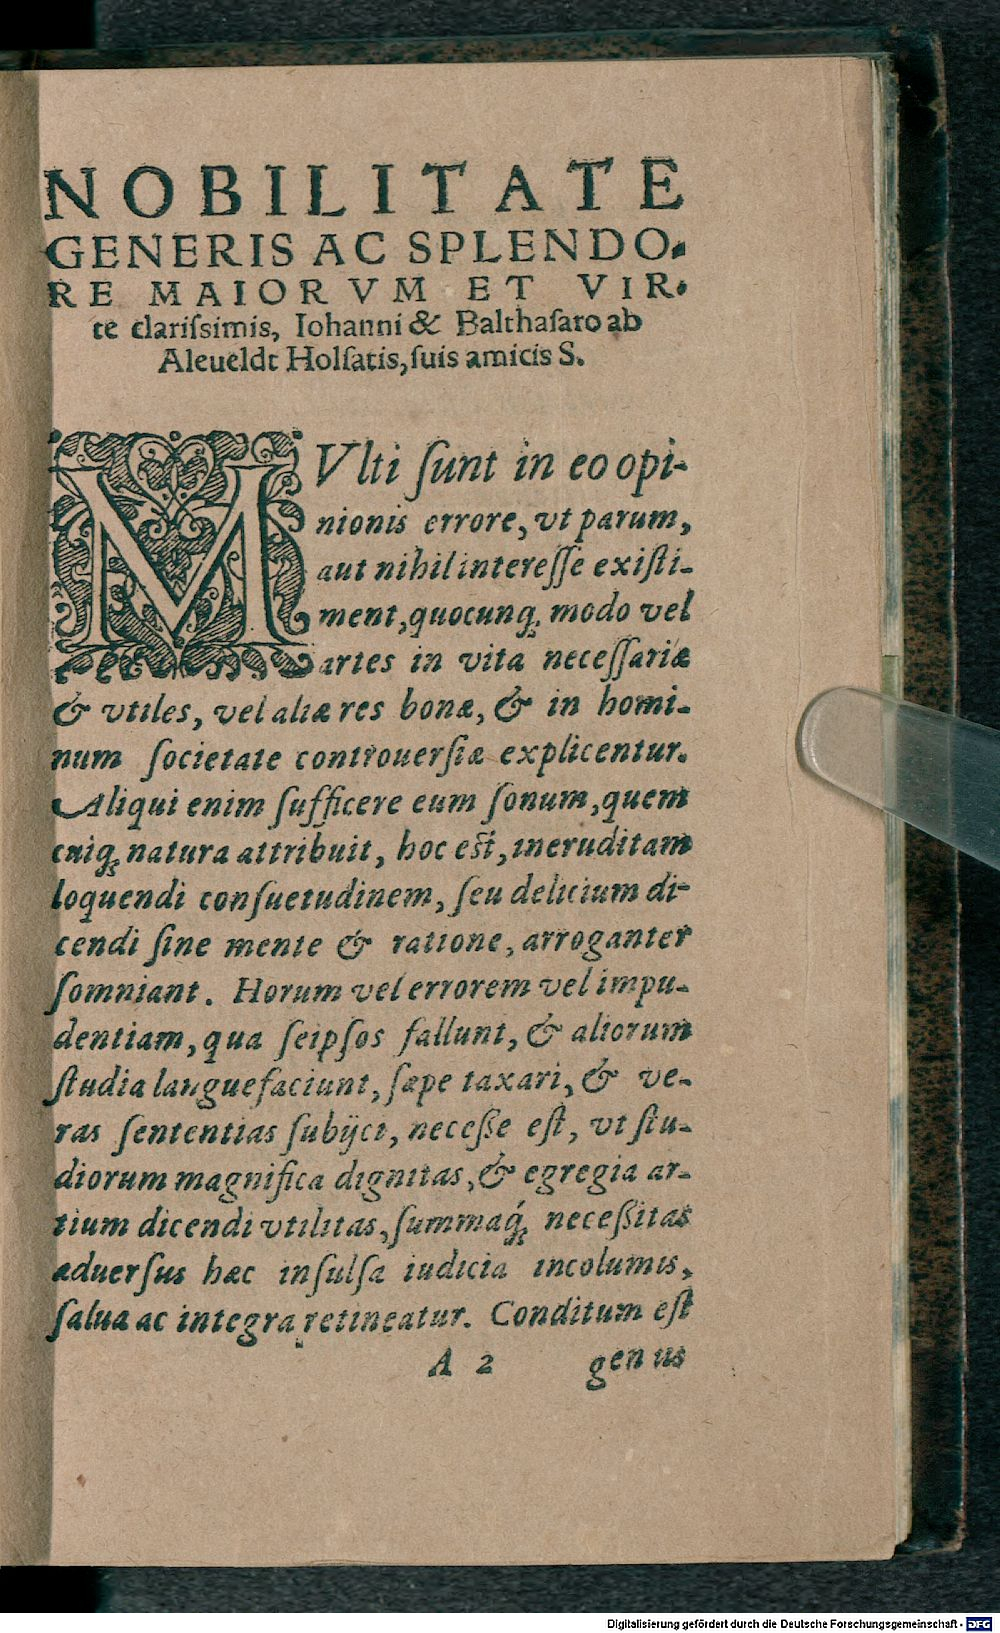 NOBILITATE
GENERIS AC SPLENDO-
RE MAIORVM ET VIR-
te clariſsimis, Iohanni & Balthaſaro ab
Aleueldt Holſatis, ſuis amicis S.
MVlti ſunt in eo opi-
nionis errore, vt parum,
aut nihil intereſſe exiſti-
ment, quocunq; modo vel
artes in vita neceſſariæ
& vtiles, vel aliæ res bonæ, & in homi-
num ſocietate controuerſiæ explicentur.
Aliqui enim ſufficere eum ſonum, quem
cuiq; natura attribuit, hoc eſt, ineruditam
loquendi conſuetudinem, ſeu delicium di-
cendi ſine mente & ratione, arroganter
ſomniant. Horum vel errorem vel impu-
dentiam, qua ſeipſos fallunt, & aliorum
ſtudia languefaciunt, ſæpe taxari, & ve-
ras ſententias ſubijci, neceße eſt, vt ſtu-
diorum magnifica dignitas, & egregia ar-
tium dicendi vtilitas, ſummaq́; neceßitas
aduerſus hæc inſulſa iudicia incolumis,
ſalua ac integra retineatur. Conditum eſt
A 2 genus
Digitalisierung gefördert durch die Deutsche Forschungsgemeinschaft - DFG